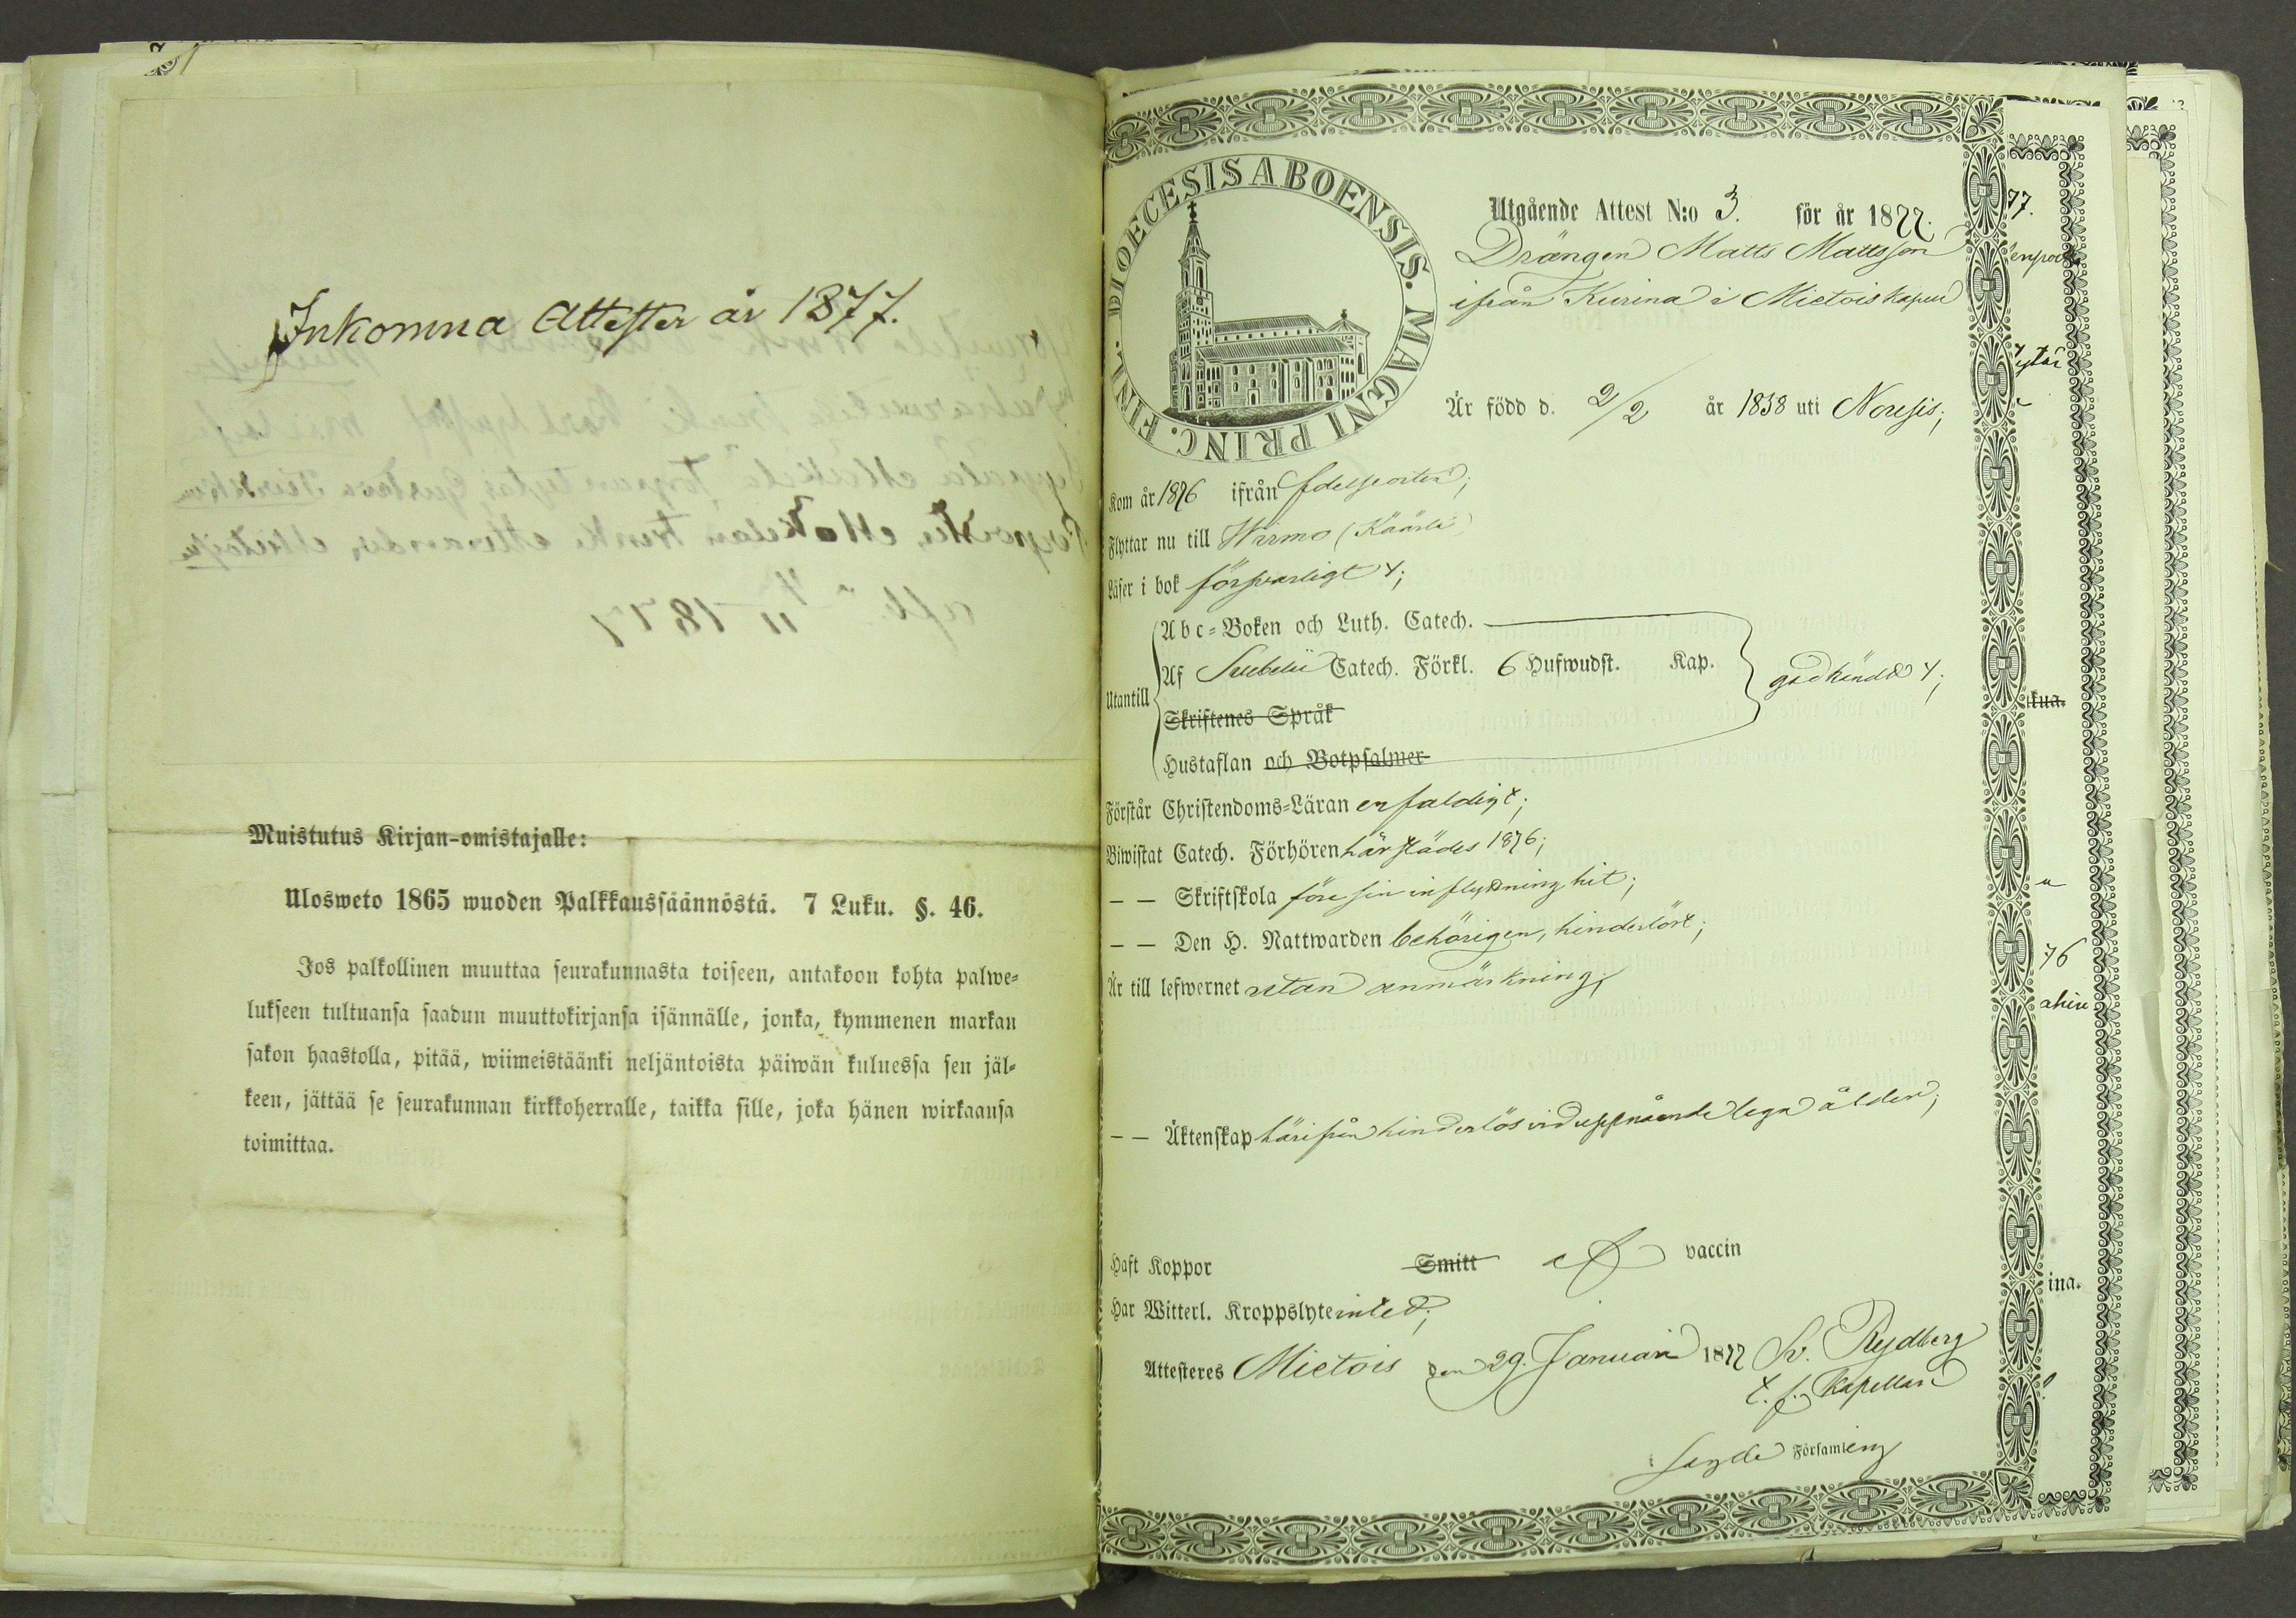 Inkomna Attester år 1877.
Muistutus Kirjan-omistajalle:
Ulosweto 1865 wuoden Palkkaussäännöstä. 7 Luku. §. 46.
Jos palkollinen muuttaa seurakunnasta toiseen, antakoon kohta palwe-
lukseen tultuansa saadun muuttokirjansa isännälle, jonka, kymmenen markan
sakon haastolla, pitää, wiimeistäänki neljäntoista päiwän kuluessa sen jäl-
keen, jättää se seurakunnan kirkkoherralle, taikka sille, joka hänen wirkaansa
toimittaa.
DIOECESIS ABOENSIS. MAGNI PRINC. FINL.
Utgående Attest N:o 3. för år 1877.
Drängen Matts Mattsson
ifrån Kurina i Mietois kapell
Är född d. 2/2 år 1838 uti Nousis;
Kom år 1876 ifrån
Flyttar nu till Wirmo (Käärlä)
Läser i bok försvarligt;
Utantill
Abc-Boken och Luth. Catech.
Af Svebelii Catech. Förkl. 6 Hufwudst. Kap.
godkändt;
Skriftenes Språk
Hustaflan och Botpsalmer
Förstår Christendoms-Läran enfaldigt;
Biwistat Catech. Förhören härstädes 1876;
— — Skriftskola före sin inflyttning hit;
— — Den H. Nattwarden behörigen, hinderlöst;
Är till lefwernet utan anmärkning;
— — Äktenskap härifrån hinderlös vid uppnående laga ålder;
Haft Koppor Smitt af vaccin
Har Witterl. Kroppslyte intet;
Attesteres Mietois den 29. Januari 1877 Rydberg
t. f. Kapellan
Församling
77.
76
kua.
ina.